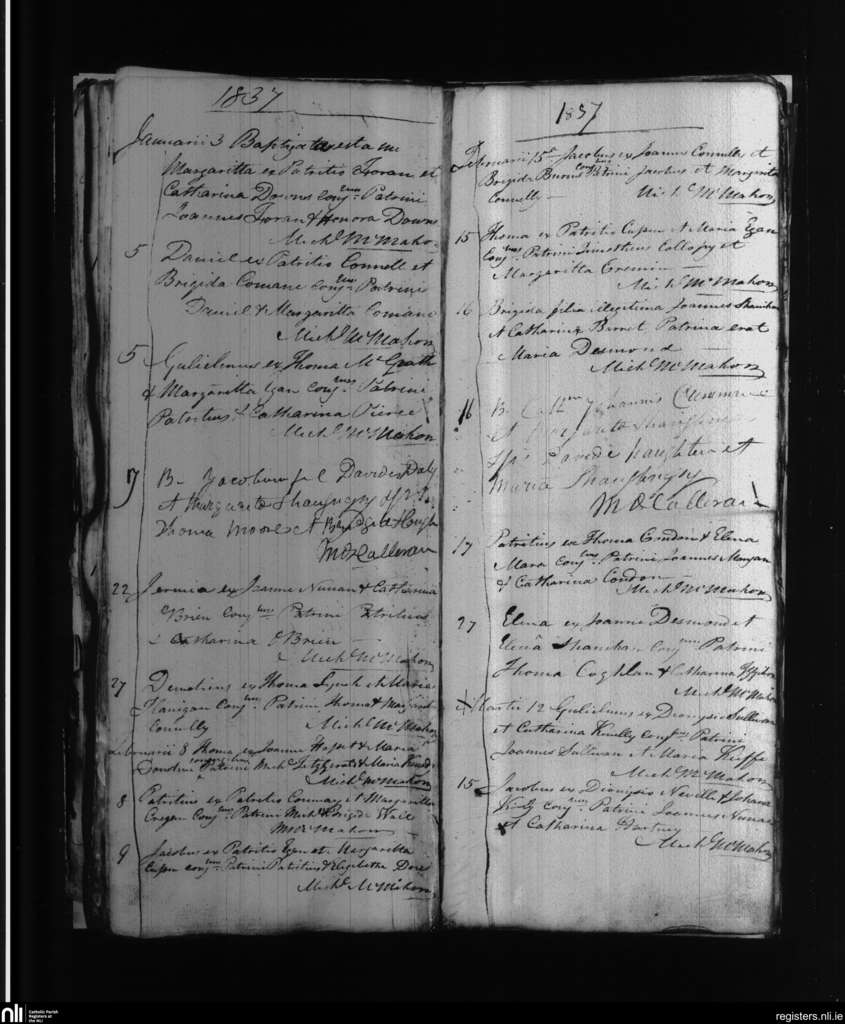 1837
Januarii 3 Baptizata esta me
Margaritta ex Patritio Foran et
Catharina Downs Conj:ium Patrini
Joannes Foran & Honora Downs
Michl McMahon
5 Daniel ex Patritio Connell et
Brigida Comane Conj:ium Patrini
Daniel & Margaritta Comane
Michl McMahon
5 Gulielmus ex Thoma McGrath
& Margaretta Egan Conj:ium Patrini
Patritius & Catharina Pierse
Michl McMahon
17 B- Jacobum f l Davidis Daly
et Margarita Shaughnesy
Thoma Moore et Bridgita Hough
M O'Calleran
22 Jeremia ex Joanne Nunan & Catharina
OBrien Conj:ium Patrini Patritius
& Catharina OBrien
Michl McMahon
27 Demetrius ex Thoma Lynch et Maria
Flanigan Conj:ium Patrini Thomas & Margaritta
Connelly Michl McMahon
Februarii 8 Thoma ex Joanne & Maria
Patrini Michl Fitzgerald & Maria
Michl McMahon
8 Patritius ex Patritio Conway et Margaritta
Cregan Conj:ium Patrini Michl & Brigida Wall
McMahon
9 Jacobus ex Patritio Egan et Margaritta
Conj:ium Patrini Patritius & Elizabetha Dore
Michl McMahon
1837
Februarii 15 Jacobus ex Joanne Connelly et
Brigida Conj:ium Patrini Jacobus et Margaritta
Connelly Michl McMahon
15 Thoma ex Patritio et Maria Egan
Conj:ium Patrini Timotheus Callopy et
Margaritta Cremin
Michl McMahon
16 Brigida filia illegitima Joannes Shanihan
et Catharina Patrina erat
Maria Desmond
Michl McMahon
16 B. Joannis
et Margarita Shaughnesy
Spr Davide Naughten et
Maria Shaughnesy
M O'Calleran
17 Patritius ex Thoma Condon & Elena
Mara Conj:ium Patrini Joannes
& Catharina Condon
Michl McMahon
27 Elena ex Joanne Desmond et
Elena Shanihan Conj:ium Patrini
Thoma Coghlan & Catharina
Michl McMahon
Martii 12 Gulielmus ex Dionysio Sullivan
et Catharina Conj:ium Patrini
Joannes Sullivan et Maria Kieffe
Michl McMahon
15 Jacobus ex Dionysio Neville & Johana
Conj:ium Patrini Joannes Nunan
et Catharina Hartney
Michl McMahon
nli Catholic Parish
Registers at
the NLI
registers.nli.ie